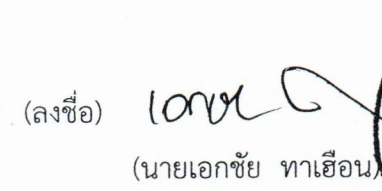 (ลงชื่อ)
(นายเอกชัย ทาเฮือน)